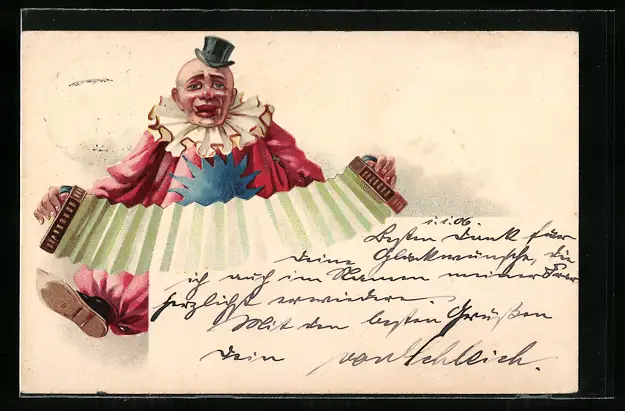 1.1.06.
Besten Dank für
Deine Glückwünsche, die
ich auch im Namen meiner Frau
herzlichst erwiedere.
Mit den besten Grüßen
Dein von Schleich.